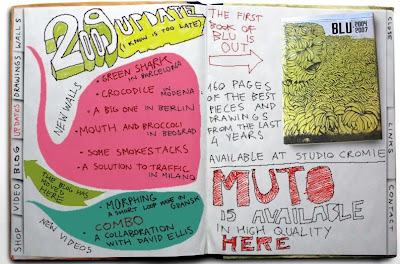 2009 UPDATE
(I KNOW IS TOO LATE)
NEW WALLS
• GREEN SHARK
IN BARCELONA
• CROCODILE IN MODENA
• A BIG ONE IN BERLIN
• MOUTH AND BROCCOLI
IN BEOGRAD
• SOME SMOKESTACKS
• A SOLUTION TO TRAFFIC
IN MILANO
THE BLOG HAS
MOVED
HERE
NEW VIDEOS
• MORPHING
A SHORT LOOP MADE IN GDANSK
COMBO
A COLLABORATION
WITH DAVID ELLIS
WALLS
DRAWINGS
UPDATES
BLOG
VIDEO
SHOP
THE FIRST
BOOK OF
BLU IS
OUT
BLU 2004
2007
160 PAGES
OF THE BEST
PIECES AND
DRAWINGS
FROM THE LAST
4 YEARS
AVAILABLE AT STUDIO CROMIE
MUTO
IS AVAILABLE
IN HIGH QUALITY
HERE
CLOSE
LINKS
CONTACT